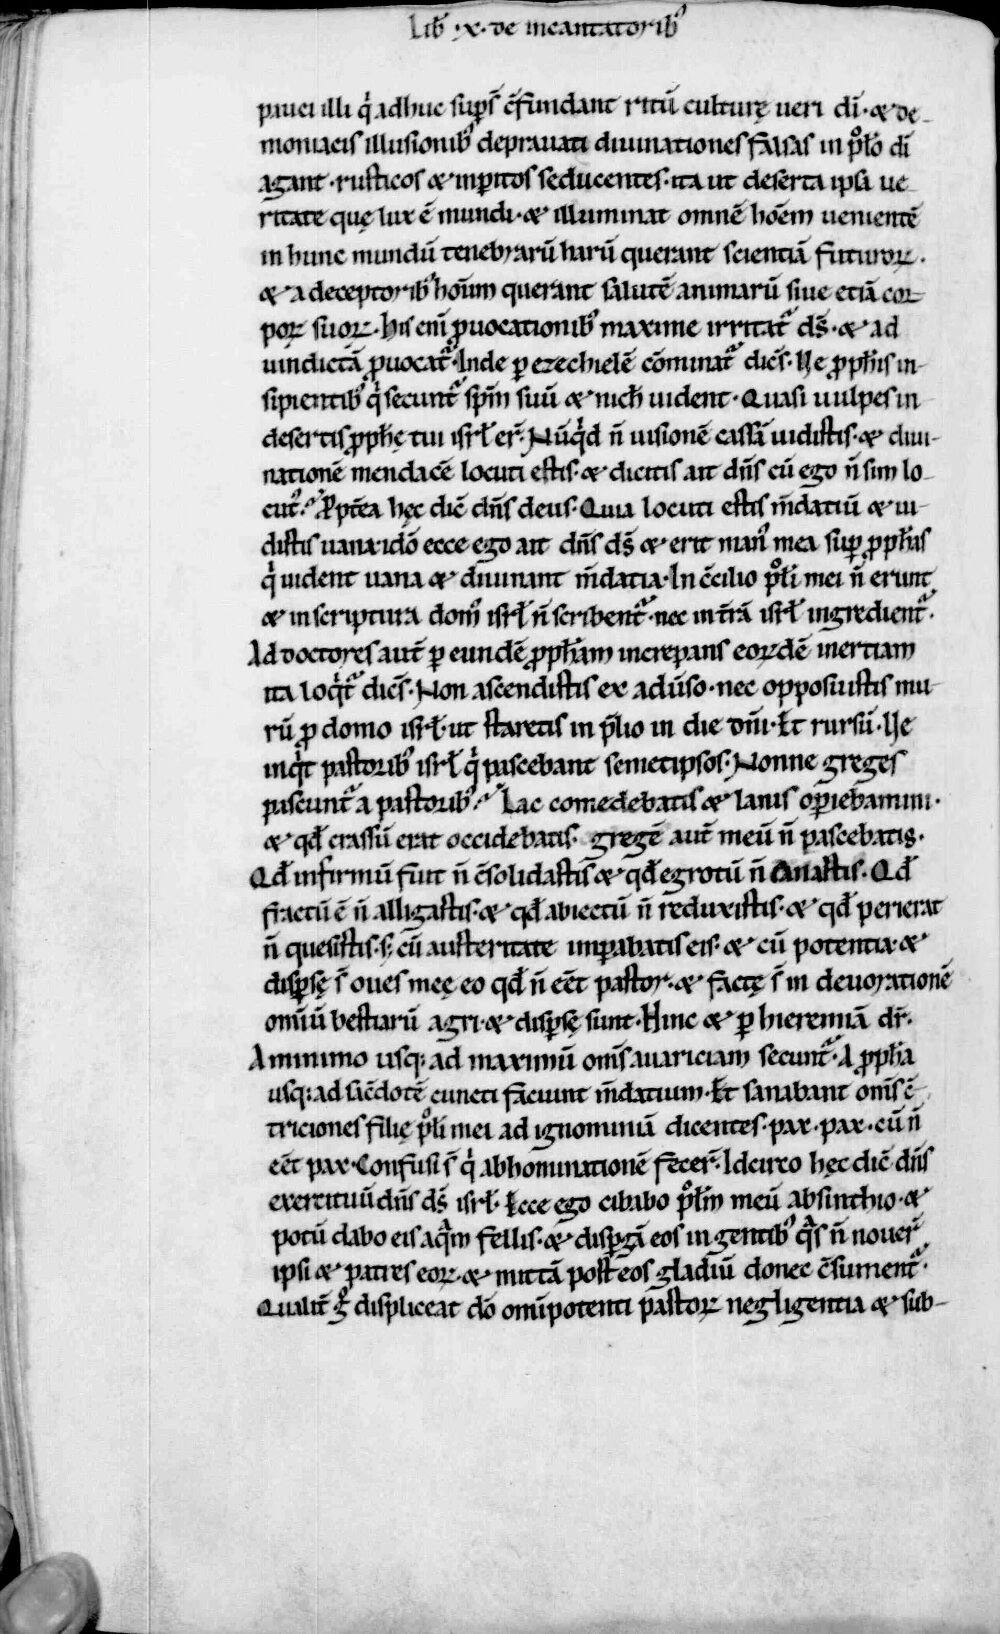 Lib̄ ·x· de incantatorib᷒
pauci illi q̇ adhuc sup̱s̄ c̄fundant ritū culturę ueri dī· & de-
moniacis illusionib᷒ deprauati diuinationes falsas in pp̄lo dī
agant· rusticos & inp̱itos seducentes· ita ut deserta ipsa ue-
ritate quę lux ē mundi· & illuminat omnē hoēm uenientē
in hunc mundū tenebrarū harū querant scientiā futuroꝝ·
& a deceptorib᷒ hoīum querant salutē animarū siue etiā cor-
poꝝ suoꝝ· his enī ꝓuocationib᷒ maxime irritat᷑ d̄s· & ad
uindictā ꝓuocat᷑· Inde ꝑ ezechielē cōminat᷑ dicēs· Ve ꝓph̄is in-
sipientib᷒ q̇ secunt᷑ sp̄m suū & nich̄ uident· Quasi uulpes in
desertis ꝓph̄ę tui isrl̄ er̄· Nūqͥd n̄ uisionē cassā uidistis· & diui-
nationē mendacē locuti estis· & dicitis ait dn̄s cū ego n̄ sim lo-
cut᷒? Ꝓpt̄ea hęc dic̄ dn̄s deus· Quia locuti estis m̄datiū & ui-
distis uana· idō ecce ego ait dn̄s d̄s & erit man᷒ mea suꝑ ꝓph̄as
q̇ uident uana & diuinant m̄datia· In c̄cilio pp̄li mei n̄ erunt
& in scriptura dom᷒ isrl̄ n̄ scribent᷑· nec in t̄rā isrl̄ ingredient᷑·
Ad doctores aut̄ ꝑ eundē ꝓph̄am increpans eorꝝdē inertiam
ita loqͥt᷑ dicēs· Non ascendistis ex adūso· nec opposuistis mu-
rū ꝓ domo isrl̄· ut staretis in p̄lio in die dn̄i· Et rursū· Ve
inqͥt pastorib᷒ isrl̄ q̇ pascebant semetipsos· Nonne greges
pascunt᷑ a pastorib᷒? Lac comedebatis & lanis opꝑiebamini·
& qd̄ crassū erat occidebatis· gregē aut̄ meū n̄ pascebatis·
Qd̄ infirmū fuit n̄ c̄solidastis & qd̄ egrotū n̄ sanastis· Qd̄
fractū ē n̄ alligastis· & qd̄ abiectū n̄ reduxistis· & qd̄ perierat
n̄ quesistis· s; cū austeritate imꝑabatis eis· & cū potentia· &
disp̱sę s̄ oues meę eo qd̄ n̄ eēt pastor· & factę s̄ in deuorationē
omīū bestiarū agri· & disp̱sę sunt· Hinc & ꝑ hieremiā dr̄·
A minimo usq; ad maximū om̄s auariciam secunt᷑· A ꝓph̄a
usq; ad sac̄dotē cuncti faciunt m̄datium· Et sanabant om̄s c̄-
triciones filię pp̄li mei ad ignominiā dicentes· pax· pax· cū n̄
eēt pax· Confusi s̄ q̇ abhominationē fecer̄· Idcirco hęc dic̄ dn̄s
exercituū dn̄s d̄s isrl̄· Ecce ego cibabo pp̄lm meū absinthio· &
potū dabo eis aqͣm fellis· & disp̱gā eos in gentib᷒ qͣs n̄ nouer̄
ipsi & patres eoꝝ· & mittā post eos gladiū donec c̄sument᷑·
Qualit̄ gͦ displiceat dō omīpotenti pastoꝝ negligentia & sub-